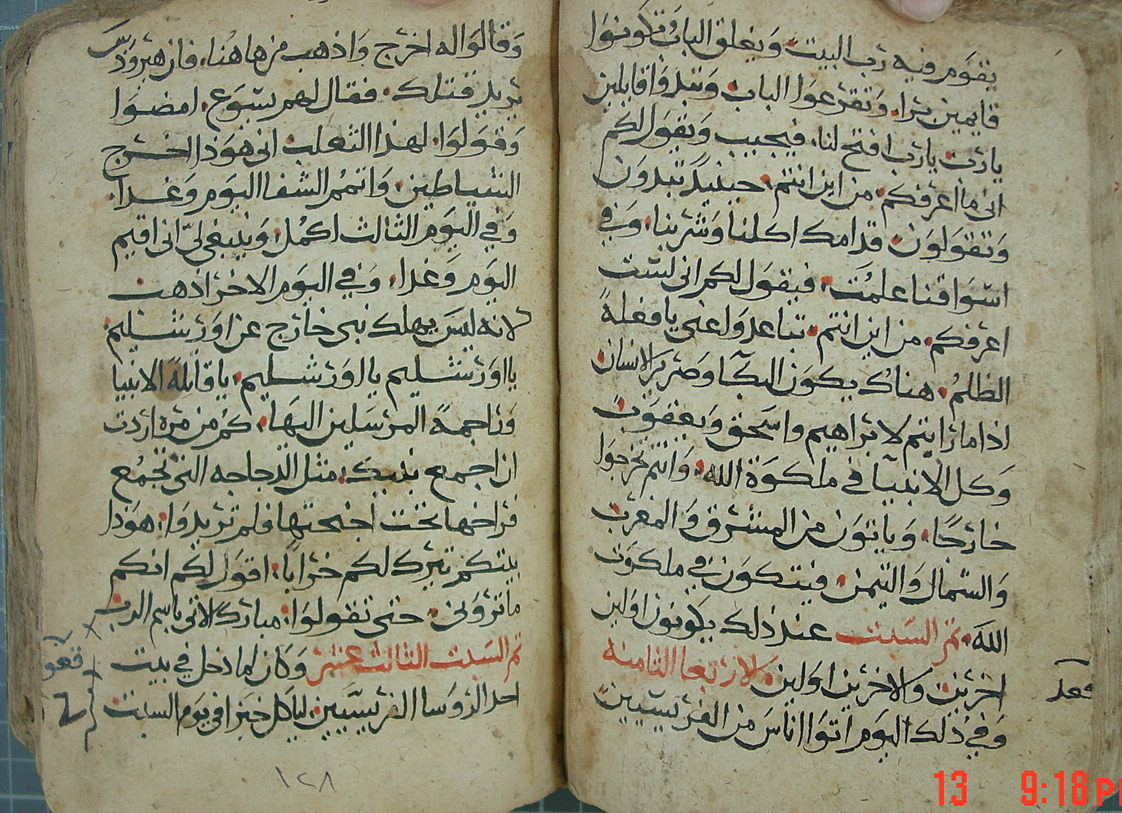 يقوم فيه رب البيت ويغلق الباب فتكونوا
قايمين برا. وتقرعوا الباب وتبدوا قايلين
يارب يارب افتح لنا. فيجيب ويقول لكم
انى ما اعرفكم. من اين انتم. حينيد تبدون
وتقولون قدامك اكلنا وشربنا. وفي
اسواقنا علمت. فيقول لكم انى لست
اعرفكم. من اين انتم. تباعدوا عني يا فعلة
الظلم. هناك يكون البكا وصرير الاسنان
اذا ما رايتم لابراهيم واسحق ويعقوب
وكل الانبيا في ملكوة الله. وانتم تخرجوا
خارجا. وياتون من المشرق والمغرب
والشمال والتيمن. فيتكون في ملكوت
الله. تم السبت عند ذلك يكونون اولين
اخرين والاخرين اولين. لاربعا الثامنه
وفي ذلك اليوم اتوا اناس من الفريسيين
وقالوا له اخرج واذهب من هاهنا. فان هيرودس
يريد قتلك. فقال لهم يسوع. امضوا
وقولوا. لهذا الثعلب انى هوذا اخرج
الشياطين. واتمم الشفا اليوم وغدا.
وفي اليوم الثالث اكمل. وينبغي لي انى اقيم
اليوم وغدا. وفي اليوم الاخر اذهب
لانه ليس يهلك نبى خارج عن اورشليم
يا اورشليم يا اورشليم. يا قاتلة الانبيا
وراجمة المرسلين اليها. كم من مرة اردت
ان اجمع بنيك. مثل الدجاجه التي تجمع
فراخها تحت اجنحتها فلم تريدوا. هوذا
بيتكم تبرك لكم خرابا. اقول لكم انكم
ما ترونى. حتى تقولوا. مبارك الاتى باسم الرب
تم السبت الثالث عشر وكان لما دخل في بيت
احد الروسا الفريسيين. لياكل خبزا في يوم السبت
١٢٨
13 9:18 P